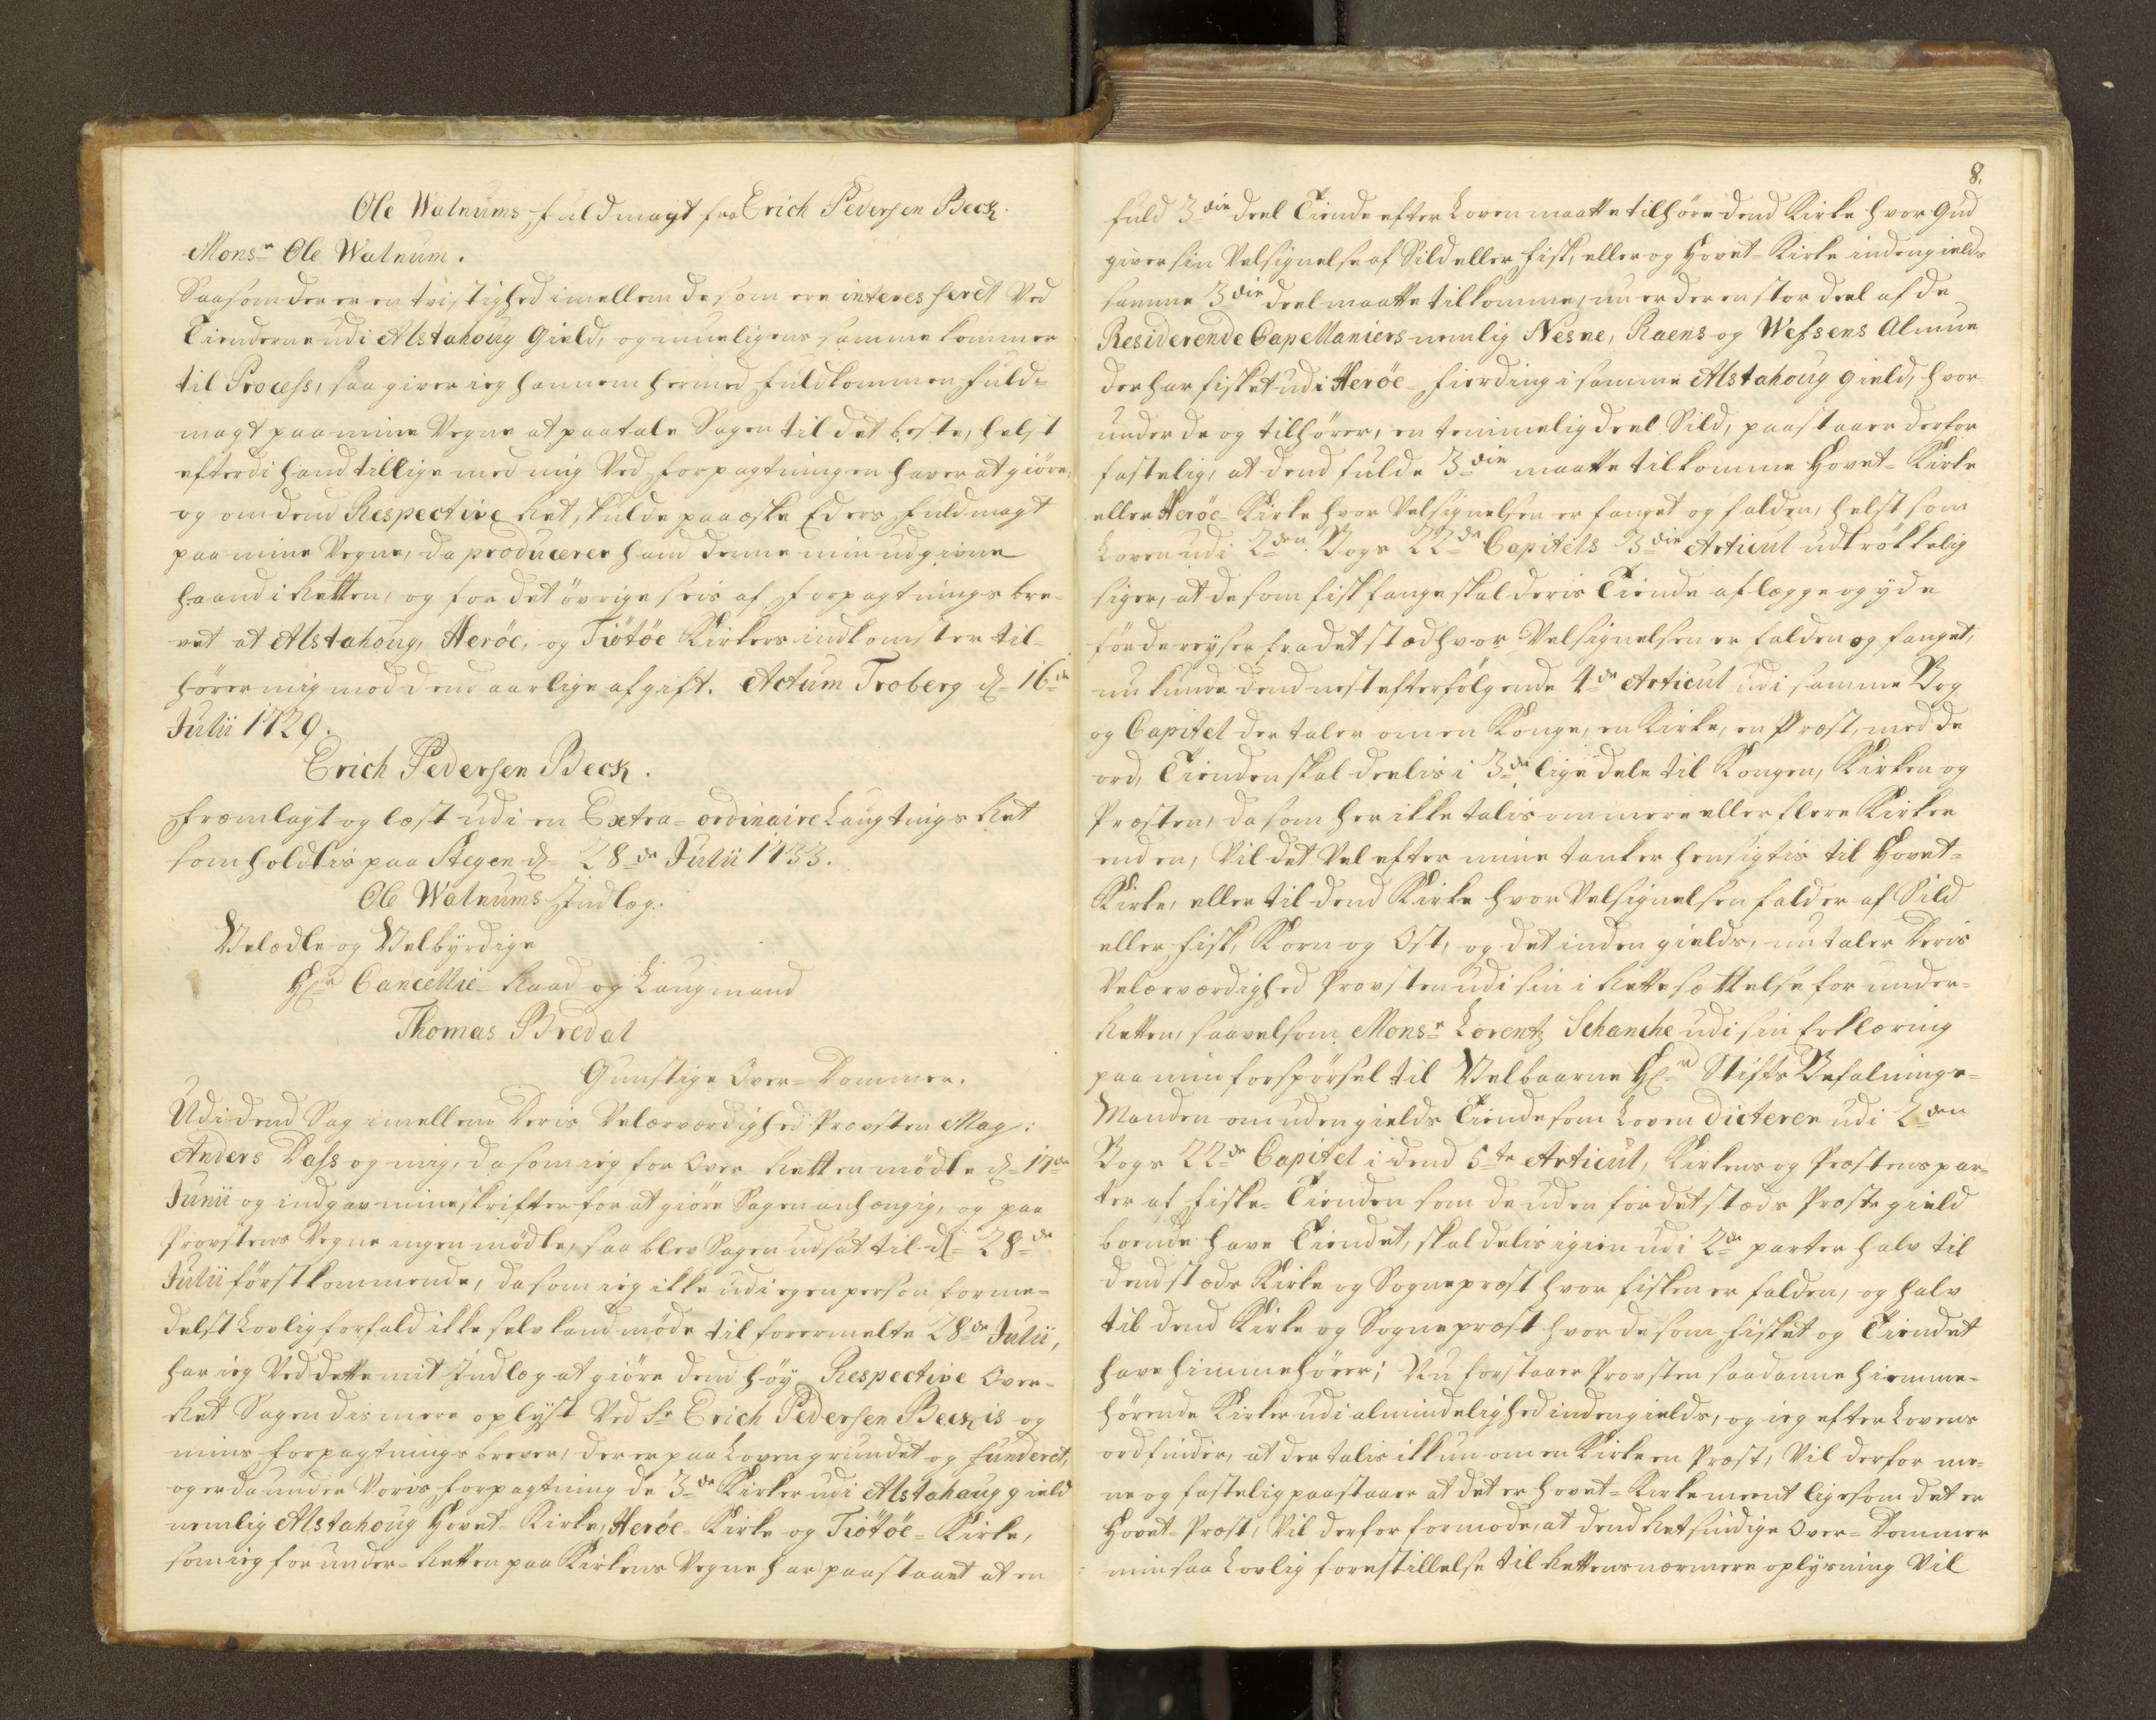 Ole Walnums Fuldmagt fra Erich Pedersen Beck.
Monsr Ole Walnum.
Saasom der er en tvistighed imellem de som ere interesseret Ved
Tienderne udi Alstahoug Gield, og mueligens samme kommer
til Process, saa giver ieg hannem hermed fuldkommen Fuld-
magt paa mine Vegne at paatale Sagen til det beste, helst
efterdi hand tillige med mig Ved Forpagtningen haver at giöre,
og om dend Respective Ret skulde paaæske Eders Fuldmagt
paa mine Vegne, da producerer hand denne min udgivne
haand i Retten, og for det övrige seis af Forpagtnings bre-
vet at Alstahoug, Heröe, og Tiötöe Kirkers indkomster til-
hörer mig mod dend aarlige afgift. Actum Troberg d. 16de
Julii 1729.
Erich Pedersen Beck.
Fremlagt og læst udi en Extra-ordinaire Laugtings Ret
som holdtis paa Stegen d. 28de Julii 1733.
Ole Walnums Indlæg.
Velædle og Velbyrdige
Hr Cancellie-Raad og Laugmand
Thomas Bredal
Gunstige Over-Dommer.
Udi dend Sag imellem Deris Velærværdighed Provsten Mag:
Anders Dass og mig, da som ieg for Over Retten mödte d. 17de
Junii og indgav mine skrifter for at giöre Sagen anhængig, og paa
Provstens Vegne ingen mödte, saa blev Sagen udsat til d. 28de
Julii förstkommende, da som ieg ikke udi egen person forme-
delst Lovlig forfald ikke selv kand möde til forermelte 28de Julii,
har ieg Ved dette mit Indlæg at giöre dend höy Respective Over-
Ret Sagen dis mere oplyst Ved Sr Erich Pedersen Beckis og
mins Forpagtnings brever, der er paa Loven grundet og funderet,
og er da under Voris Forpagtning de 3de Kirker udi Alstahaug gield
nemlig Alstahoug Hovet-Kirke, Heröe-Kirke og Tiötöe-Kirke,
som ieg for under-Retten paa Kirkens Vegne har paastaaet at en
8.
fuld 3die deel Tiende efter Loven maatte tilhöre dend Kirke hvor Gud
giver sin Velsignelse af Sild eller Fisk, eller og Hovet-Kirke indengields
samme 3die deel maatte tilkomme, nu er der en stor deel af de
Residerende Capellaniers nemlig Nesne, Raens og Wefsens Almue
der har fisket udi Heröe-Fierding i samme Alstahoug gield, hvor
under de og tilhörer, en temmelig deel Sild, paastaaer derfor
fastelig, at dend fulde 3die maatte tilkomme Hovet-Kirke
eller Heröe-Kirke hvor Velsignelsen er fanget og falden, helst som
Loven udi 2den Bogs 22de Capitels 3die Articul udtrökkelig
siger, at de som fisk fange skal deris Tiende aflægge og yde
för de reyser fra det stæd hvor Velsignelsen er falden og fanget,
nu kunde dend nest efterfölgende 4de Articul udi samme Bog
og Capitel der taler om en Konge, en Kirke, en Præst, med de
ord, Tienden skal deelis i 3de lige dele til Kongen, Kirken og
Præsten, da som her ikke talis om mere eller flere Kirker
end en, Vil det Vel efter mine tanker hensigtis til Hovet-
Kirke, eller til dend Kirke hvor Velsignelsen falder af Sild
eller Fisk, Korn og Ost, og det inden gields, nu taler Deris
Velærværdighed Provsten udi sin i Rettesættelse for under-
Retten, saavelsom Monsr Lorentz Schanche udi sin Erklæring
paa min forspörsel til Velbaarne Hr Stifts Befalnings-
Manden om uden gields Tiende som Loven dicterer udi 2den
Bogs 22de Capitel i dend 5te Articul, Kirkens og Præstens par-
ter af Fiske-Tienden som de uden for det stæds Præstegield
boende have Tiendet, skal delis igien udi 2de parter halv til
dend stæds Kirke og Sognepræst hvor fisken er falden, og halv
til dend Kirke og Sognepræst hvor de som fisket og Tiendet
have himmehörer; Nu forstaaer Provsten saadanne hiemme-
hörende Kirker udi almindelighed indengields, og ieg efter Lovens
ord finder, at der talis ikkun om en Kirke en Præst, Vil derfor me-
ne og fastelig paastaaer at det er hovet-Kirke meent ligesom det er
Hovet-Præst, Vil derfor formode, at dend Retsindige Over-Dommer
min saa Lovlig forestillelse til Rettens nærmere oplysning Vil